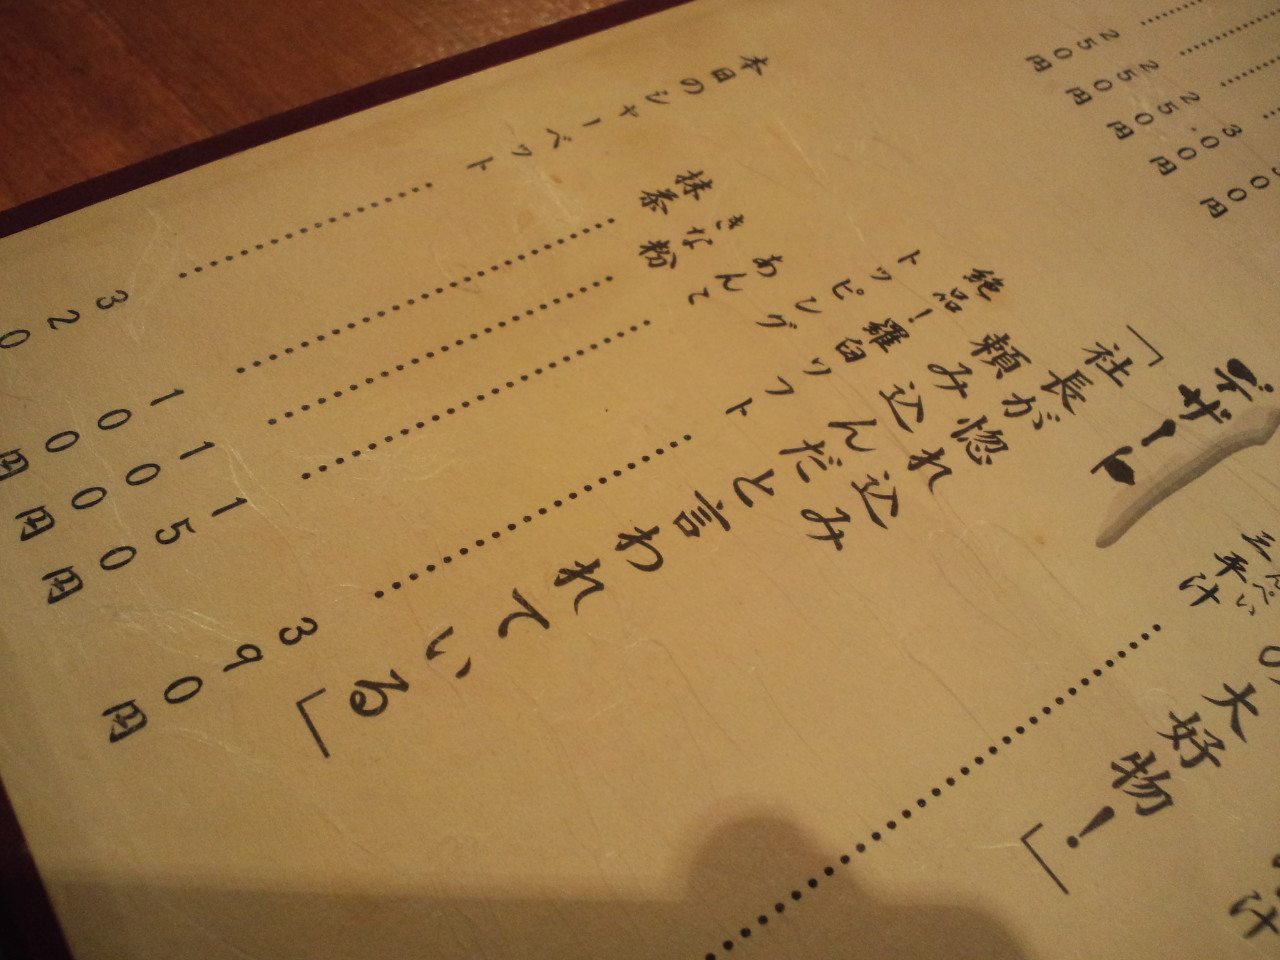 250円
250円
250円
300円
三平汁
さんぺい
大好物!」
汁
デザート
「社長が惚れ込み
頼み込んだと言われている」
絶品!羅臼ソフト………390円
トッピング
あんこ………150円
きな粉………100円
抹茶………100円
本日のシャーベット………320